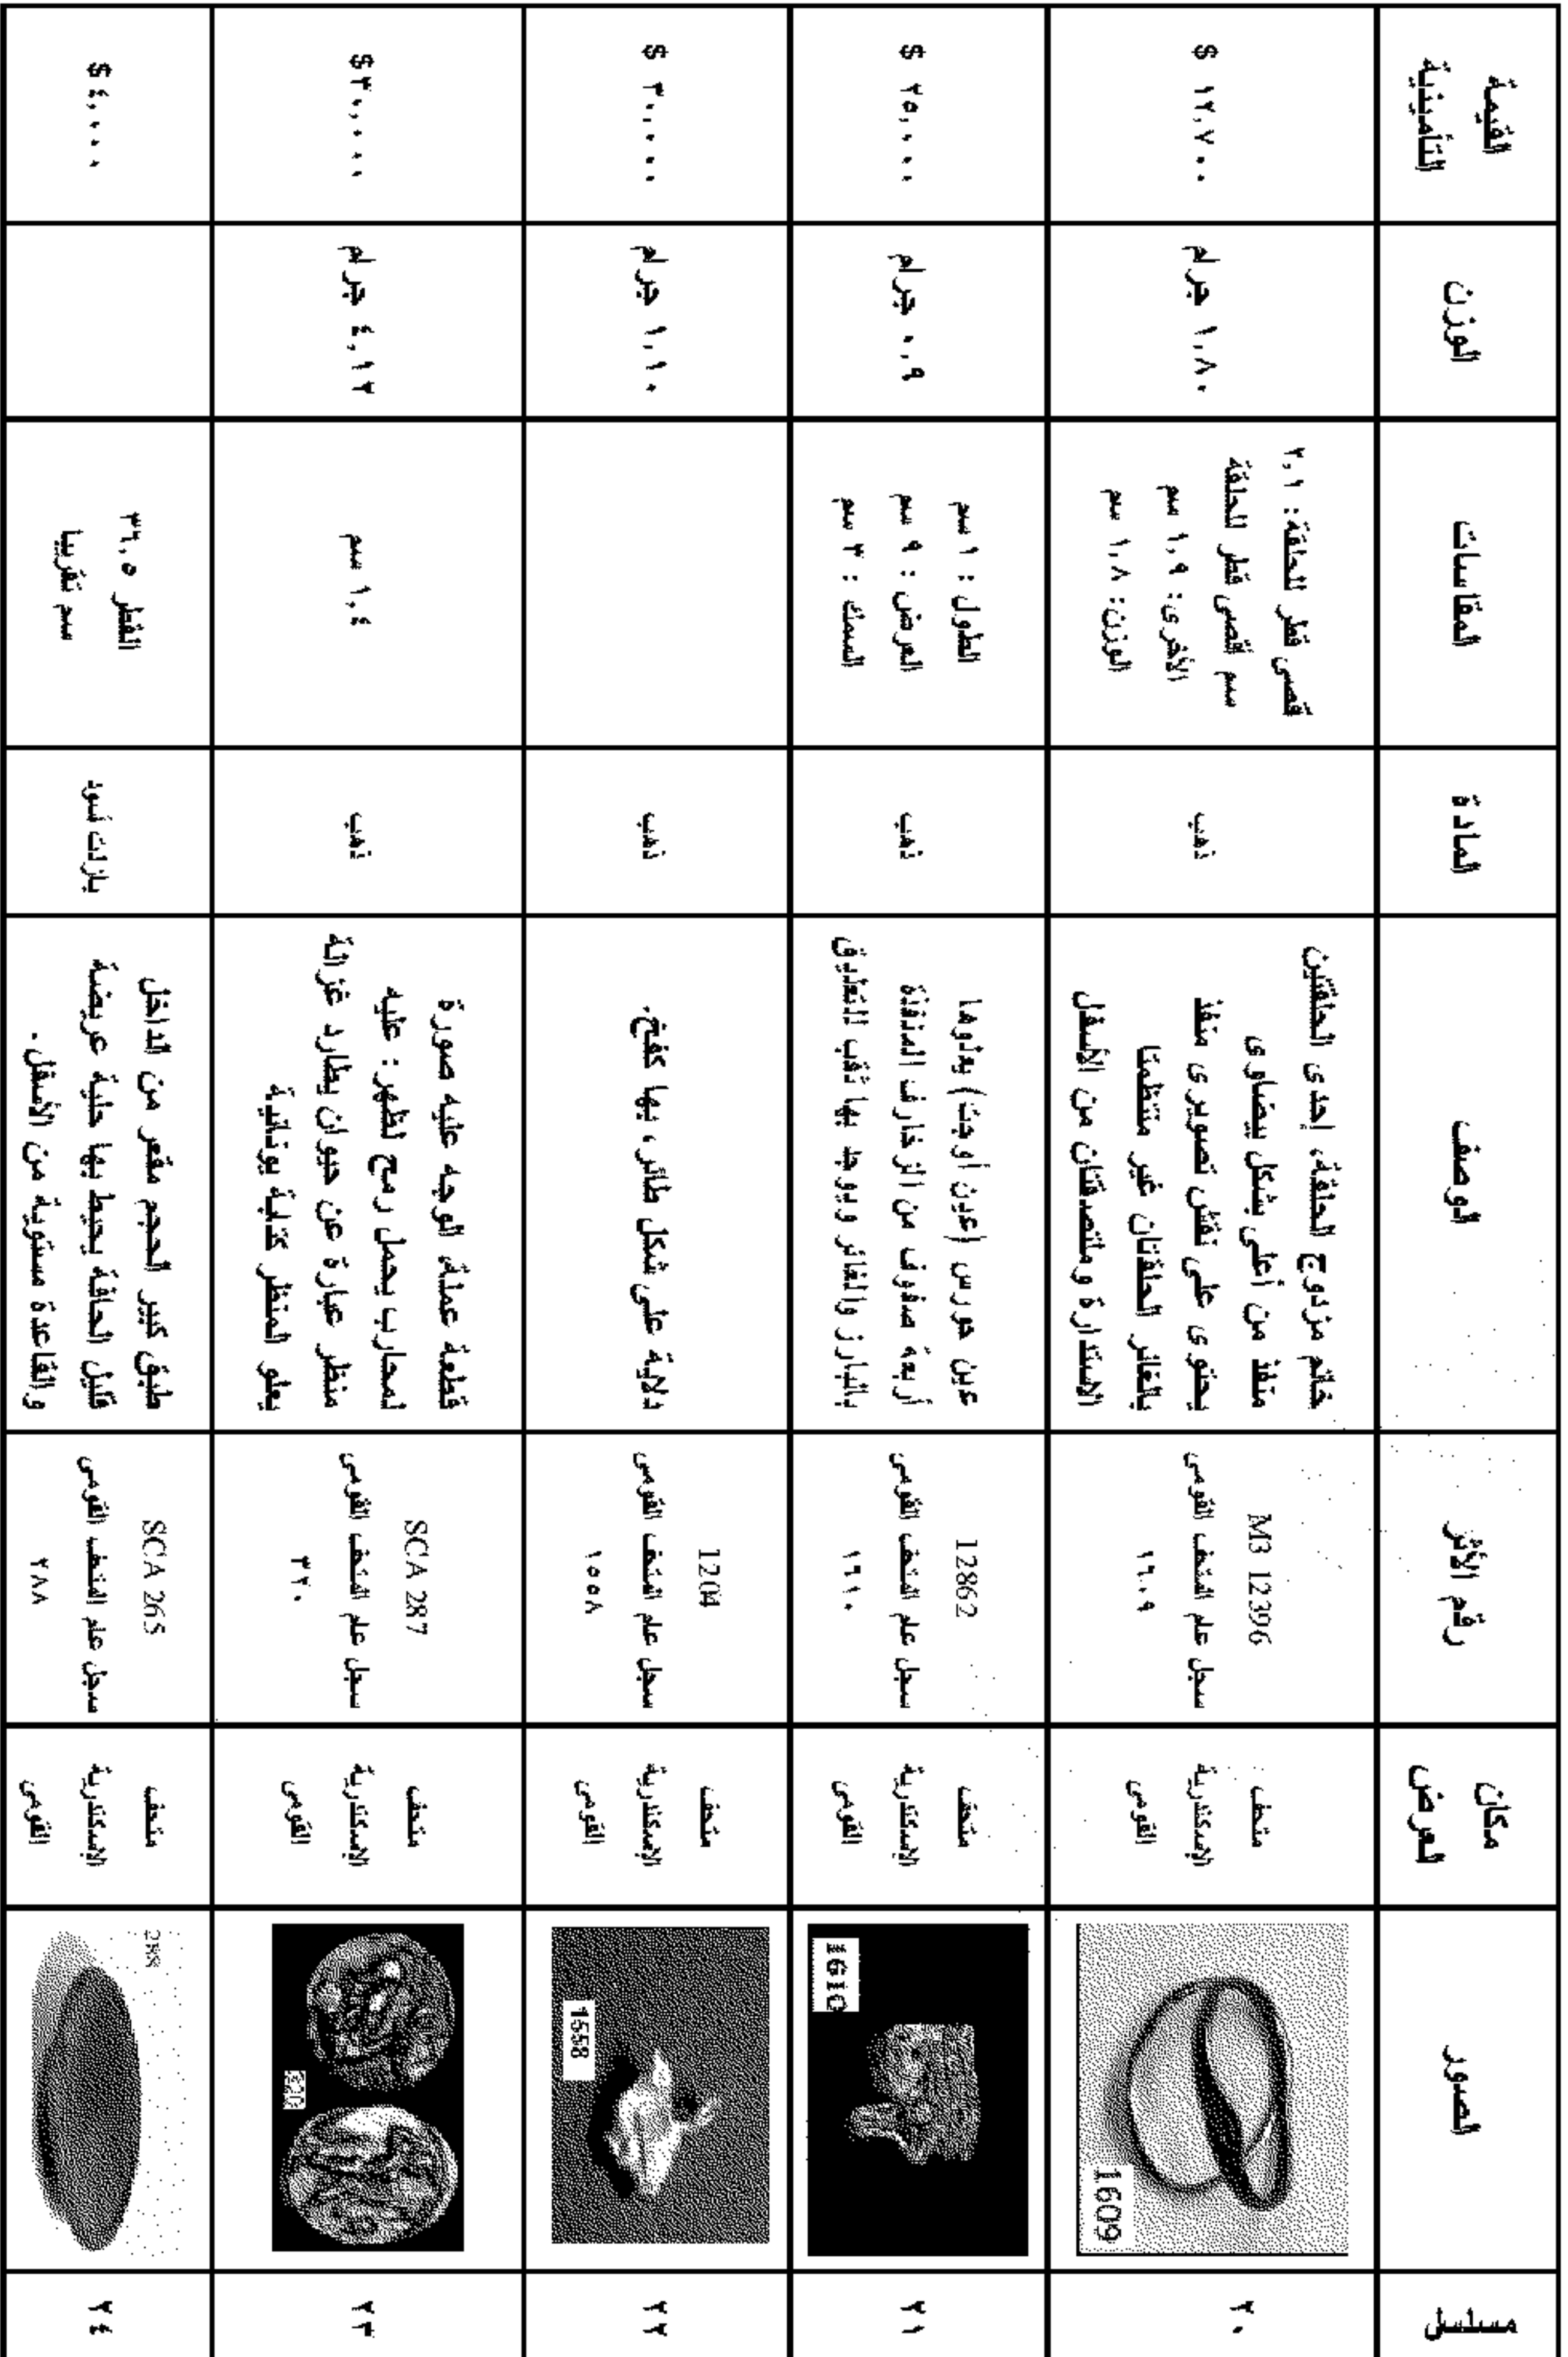 مسلسل
الصور
مكان
العرض
رقم الأثر
الوصف
المادة
المقاسات
الوزن
القيمة
التأمينية
٢٠
1609
متحف
الإسكندرية
القومى
M3 12396
سجل عام المتحف القومى
١٦٠٩
خاتم مزدوج الحلقة، إحدى الحلقتين
منفذ من أعلى بشكل بيضاوى
يحتوى على نقش تصويرى منفذ
بالغائر الحلقتان غير منتظمتا
الاستدارة وملتصقتان من الأسفل
ذهب
قصى قطر للحلقة: ٢,١
سم أقصى قطر للحلقة
الأخرى: ١,٩ سم
الوزن: ١,٨ سم
١,٨٠ جرام
١٢,٧٠٠ $
٢١
1610
متحف
الإسكندرية
القومى
12862
سجل عام المتحف القومى
١٦١٠
عين حورس (عين أوجت) يعلوها
أربعة صفوف من الزخارف المنفذة
بالبارز والغائر ويوجد بها ثقب للتعليق
ذهب
الطول : ١ سم
العرض : ٩ سم
السمك : ٣ سم
٠,٩ جرام
٢٥,٠٠٠ $
٢٢
1558
متحف
الإسكندرية
القومى
1204
سجل عام المتحف القومى
١٥٥٨
دلاية على شكل طائر، بها كفخ.
ذهب
١,١٠ جرام
٣٠,٠٠٠ $
٢٣
320
متحف
الإسكندرية
القومى
SCA 287
سجل عام المتحف القومى
٣٢٠
قطعة عملة، الوجه عليه صورة
لمحارب يحمل رمح لظهر: عليه
منظر عبارة عن حيوان يطارد غزالة
يعلو المنظر كتابة يونانية
ذهب
١,٤ سم
٤,١٢ جرام
٣٠,٠٠٠$
٢٤
288
متحف
الإسكندرية
القومى
SCA 265
سجل عام المتحف القومى
٢٨٨
طبق كبير الحجم مقعر من الداخل
قليل الحافة يحيط بها حلية عريضة
والقاعدة مستوية من الأسفل.
بازلت أسود
القطر ٣٦,٥
سم تقريبا
٤,٠٠٠ $